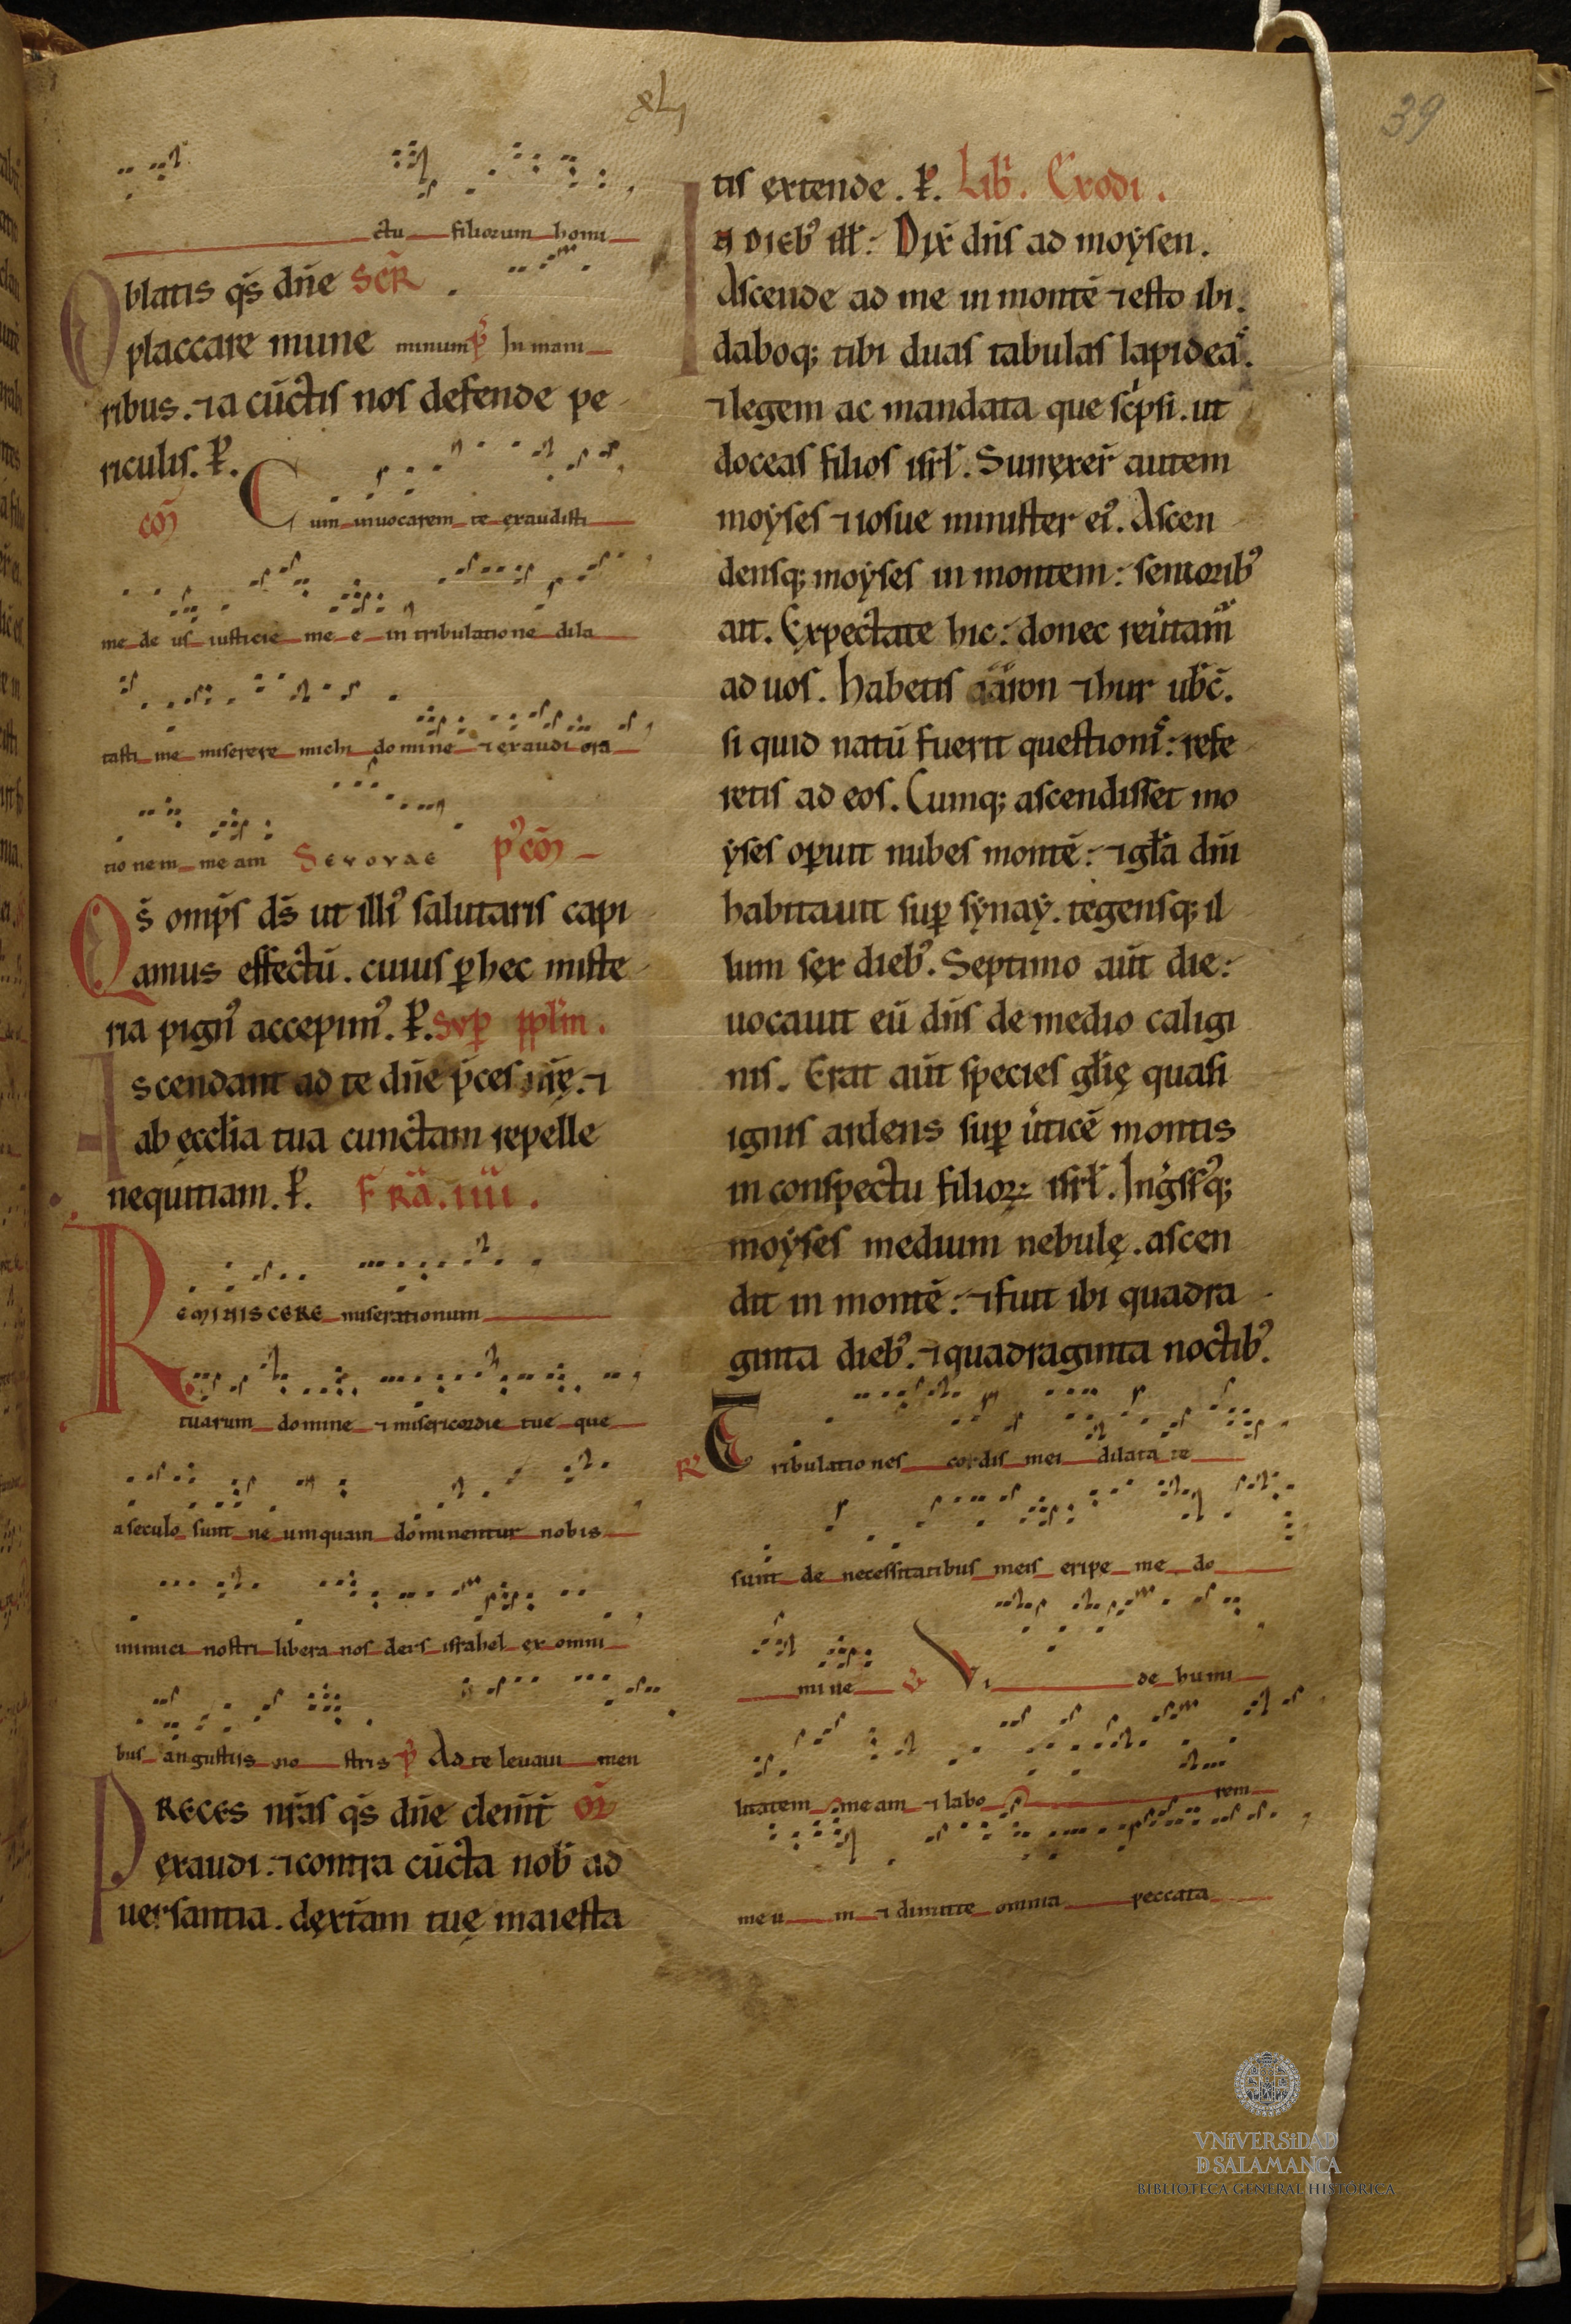 xLj
39
ctu filiorum homi
Oblatis qs̄ dn̄e SCR̄
placcare mune minum P̄ In mani
ribus. ⁊ a cūctis nos defende pe
riculis. P̄.
cō Cum inuocarem te exaudisti
me de us iusticie me e in tribulatione dila
tasti me miserere michi domine ⁊ exaudi ora
tionem meam Sevovae p' cō
Qs̄ omp̄s ds̄ ut illi' salutaris capi
amus effectū. cuius ꝑ hec miste
ria pign' accepim'. P̄. Sup̱ pplm̄.
Ascendant ad te dn̄e p̄ces nr̄ę. ⁊
ab ęcclia tua cunctam repelle
nequitiam. P̄. FR̄A. IIII.
Reminiscere miserationum
tuarum domine ⁊ misericordie tue que
a seculo sunt ne umquam dominentur nobis
inimici nostri libera nos deus israhel ex omni
bus angustiis no stris P̄ Ad te leuaui men
Preces nr̄as qs̄ dn̄e clem̄t oR̄
ęxaudi. ⁊ contra cūcta nob̄ ad
uersantia. dęxtam tuę maiesta
tis ęxtende. P̄. Lib̄. Exodi.
In dieb' ill̄: Dix̄ dn̄s ad moẏsen.
Ascende ad me in montē ⁊ esto ibi.
daboq; tibi duas tabulas lapideas.
⁊ legem ac mandata que sc̍psi. ut
doceas filios isrl̄. Surręxer̄ autem
moẏses ⁊ iosue minister ei'. Ascen
densq; moẏses in montem: seniorib'
ait. Expectate hic: donec reu̍tam̄
ad uos. Habetis aaron ⁊ hur ubc̄.
si quid natū fuerit questionis: refe
retis ad eos. Cumq; ascendisset mo
ẏses oꝑuit nubes montē: ⁊ gl̄a dn̄i
habitauit suꝑ sẏnaẏ. tegensq; il
lum sęx dieb'. Septimo aūt die:
uocauit eū dn̄s de medio caligi
nis. Erat aūt species gl̄ię quasi
ignis ardens suꝑ u̍ticē montis
in conspectu filioꝝ isrl̄. Ing̍ss'q;
moẏses medium nebulę. ascen
dit in montē: ⁊ fuit ibi quadra
ginta dieb'. ⁊ quadraginta noctib'.
R' Tribulationes cordis mei dilata te
sunt de necessitatibus meis eripe me do
mine V' Vi de humi
litatem meam ⁊ labo rem
meu m ⁊ dimitte omnia peccata
VNiVERSiDAD
D SALAMANCA
BIBLIOTECA GENERAL HISTÓRICA